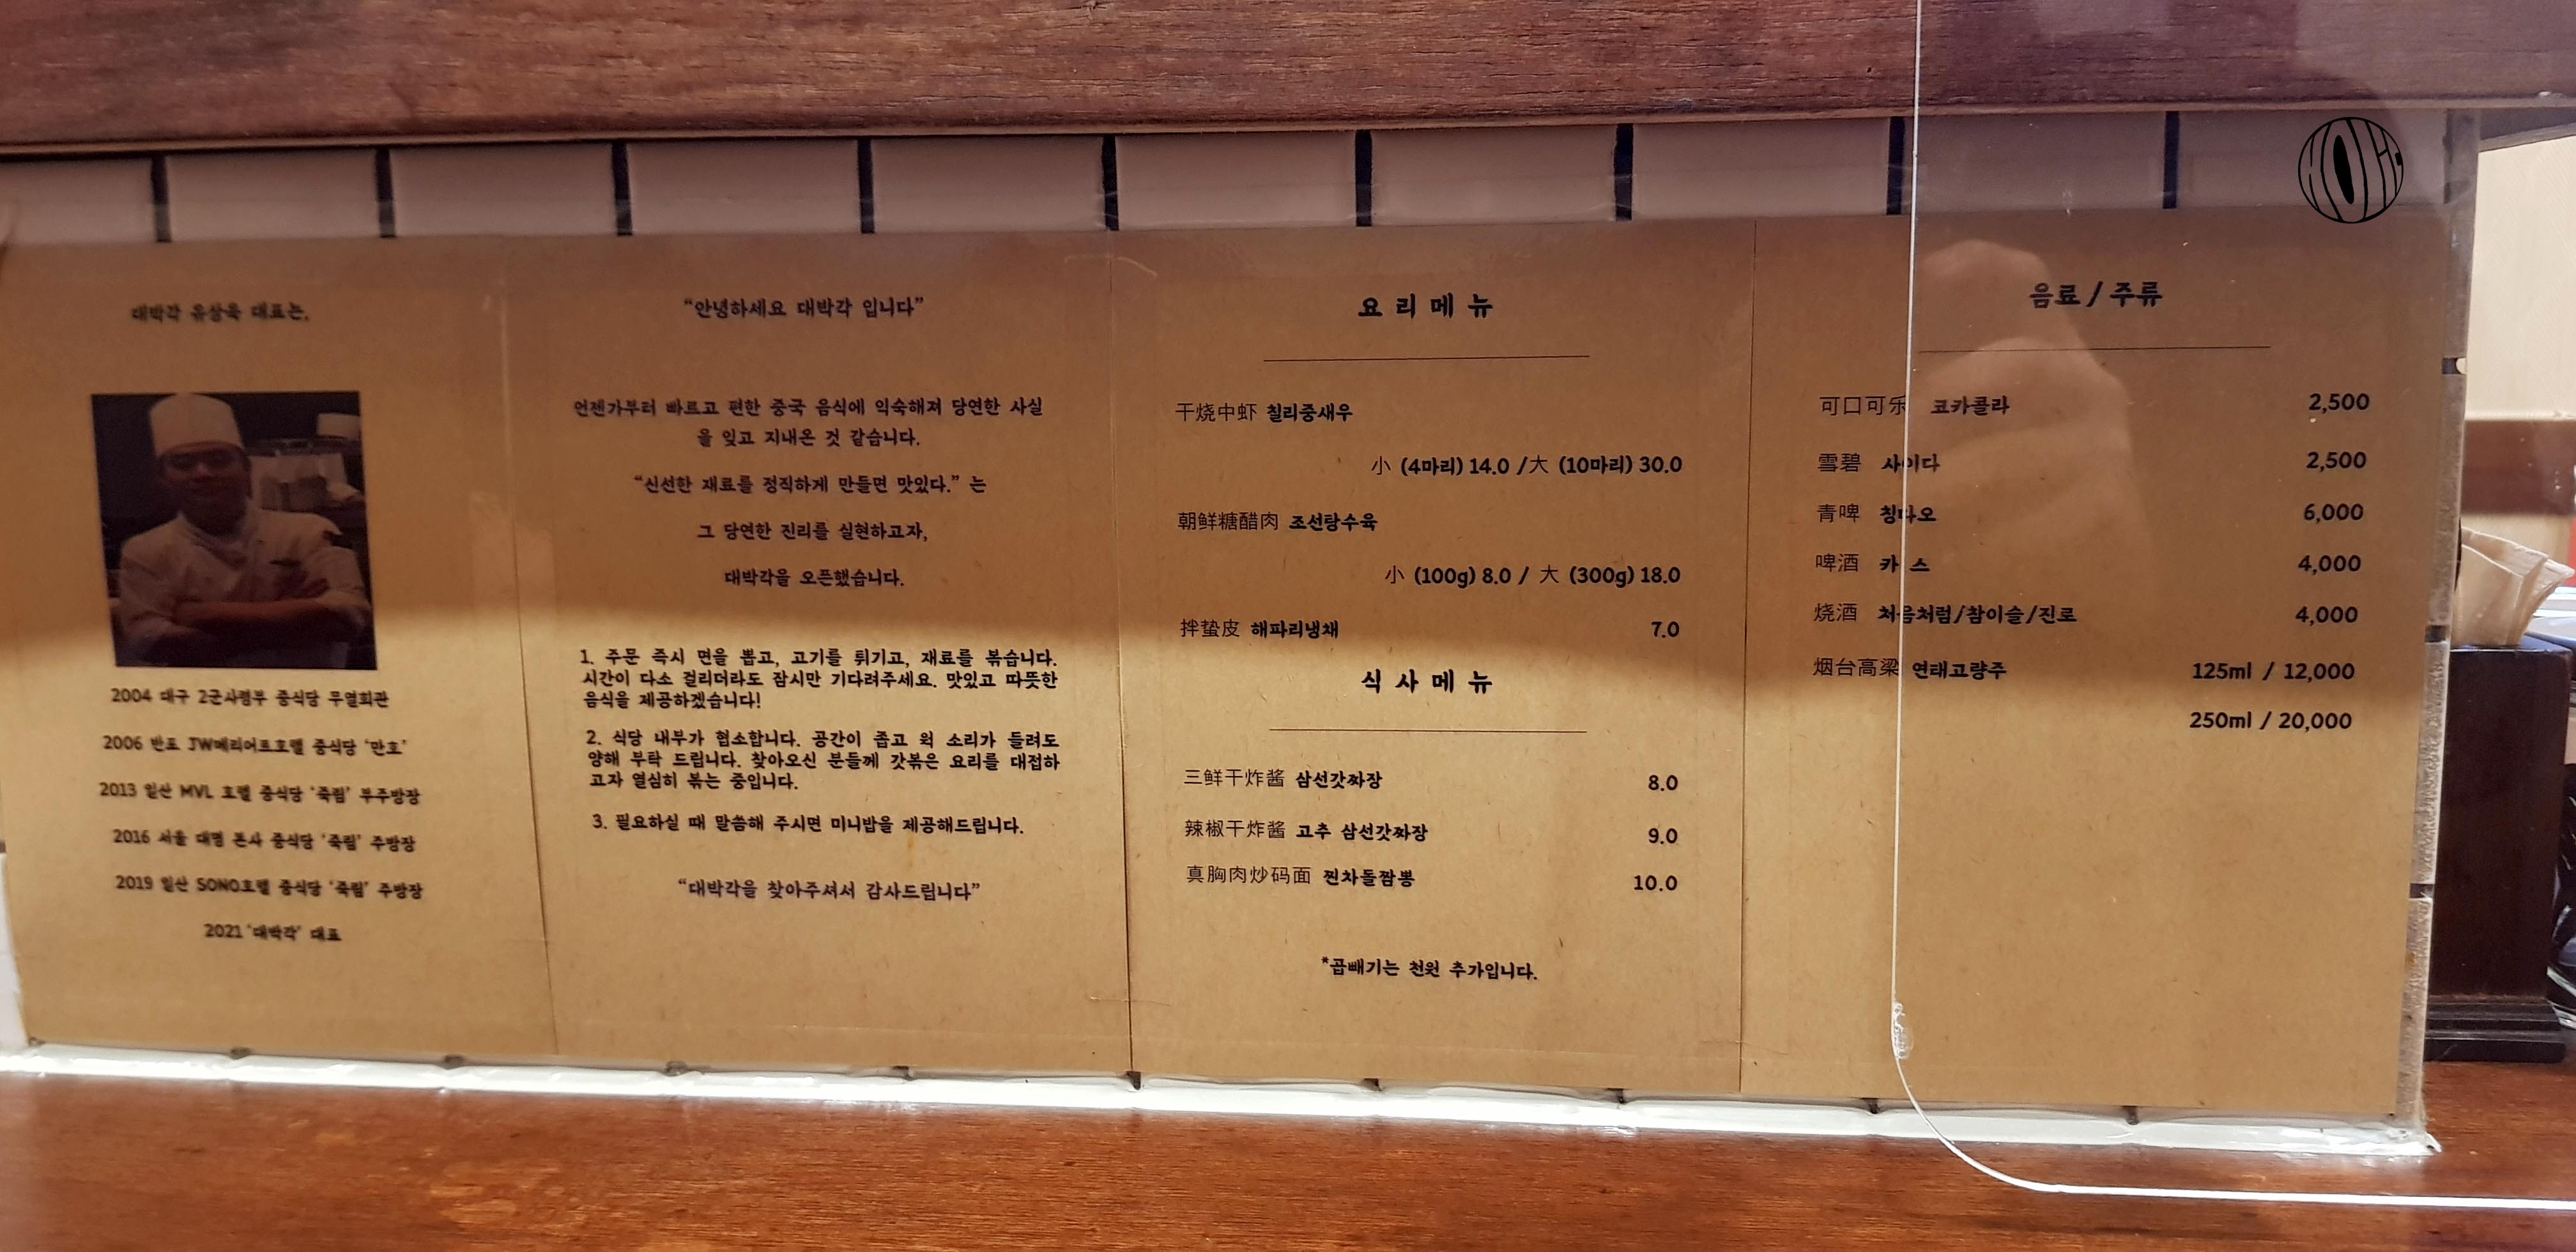 대박각 유상욱 대표는,
2004 대구 2군사령부 중식당 무열회관
2006 반포 JW메리어트호텔 중식당 '만호'
2013 일산 MVL 호텔 중식당 '죽림' 부주방장
2016 서울 대명 본사 중식당 '죽림' 주방장
2019 일산 SONO호텔 중식당 '죽림' 주방장
2021 '대박각' 대표
“안녕하세요 대박각 입니다”
언젠가부터 빠르고 편한 중국 음식에 익숙해져 당연한 사실
을 잊고 지내온 것 같습니다.
“신선한 재료를 정직하게 만들면 맛있다.” 는
그 당연한 진리를 실현하고자,
대박각을 오픈했습니다.
1. 주문 즉시 면을 뽑고, 고기를 튀기고, 재료를 볶습니다.
시간이 다소 걸리더라도 잠시만 기다려주세요. 맛있고 따뜻한
음식을 제공하겠습니다!
2. 식당 내부가 협소합니다. 공간이 좁고 웍 소리가 들려도
양해 부탁 드립니다. 찾아오신 분들께 갓볶은 요리를 대접하
고자 열심히 볶는 중입니다.
3. 필요하실 때 말씀해 주시면 미니밥을 제공해드립니다.
“대박각을 찾아주셔서 감사드립니다”
요리메뉴
干烧中虾 칠리중새우
小 (4마리) 14.0 / 大 (10마리) 30.0
朝鲜糖醋肉 조선탕수육
小 (100g) 8.0 / 大 (300g) 18.0
拌蛰皮 해파리냉채 7.0
식사메뉴
三鲜干炸酱 삼선갓짜장 8.0
辣椒干炸酱 고추 삼선갓짜장 9.0
真胸肉炒码面 찐차돌짬뽕 10.0
*곱빼기는 천원 추가입니다.
음료/주류
可口可乐 코카콜라 2,500
雪碧 사이다 2,500
青啤 칭따오 6,000
啤酒 카스 4,000
烧酒 처음처럼/참이슬/진로 4,000
烟台高粱 연태고량주 125ml / 12,000
250ml / 20,000